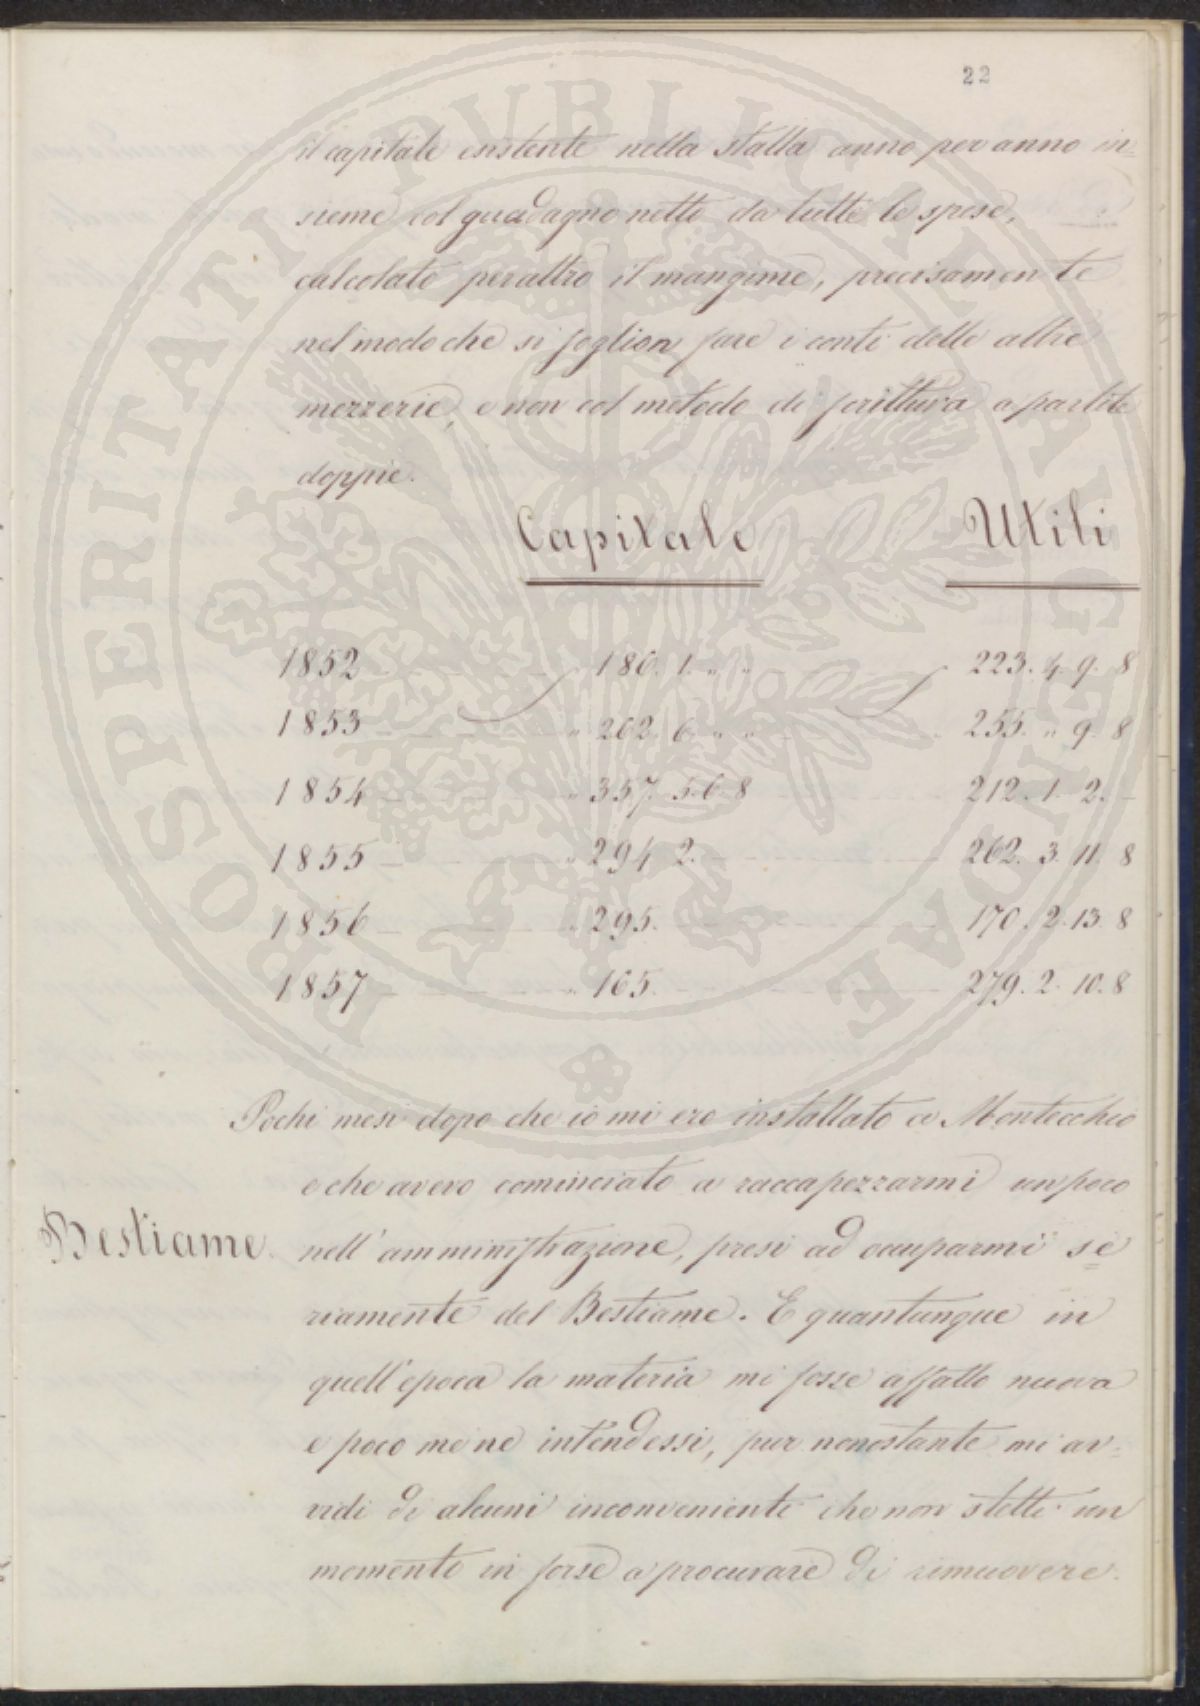 22
il capitale esistente nella stalla anno per anno in=
sieme col guadagno netto da tutte le spese,
calcolato peraltro il mangime, precisamente
nel modo che si soglion fare i conti delle altre
mezzerie, e non col metodo di scrittura a partite
doppie.
Capitale Utili
1852 186. 1. " " 223. 4. 9. 8
1853 " 262. 6. " " 255. " 9. 8
1854 " 357. 5. 6. 8 212. 1. 2. -
1855 " 294 2. 262. 3. 11. 8
1856 " 295. 170. 2. 13. 8
1857 " 165. 279. 2. 10. 8
Pochi mesi dopo che io mi ero installato a Montecchio
e che avevo cominciato a raccapezzarmi un poco
Bestiame. nell'amministrazione, presi ad occuparmi se=
riamente del Bestiame. E quantunque in
quell'epoca la materia mi fosse affatto nuova
e poco me ne intendessi, pur nonostante mi av=
vidi di alcuni inconvenienti che non stetti un
momento in forse a procurare di rimuovere.
PROSPERITATI PVBLICAE AVGENDAE